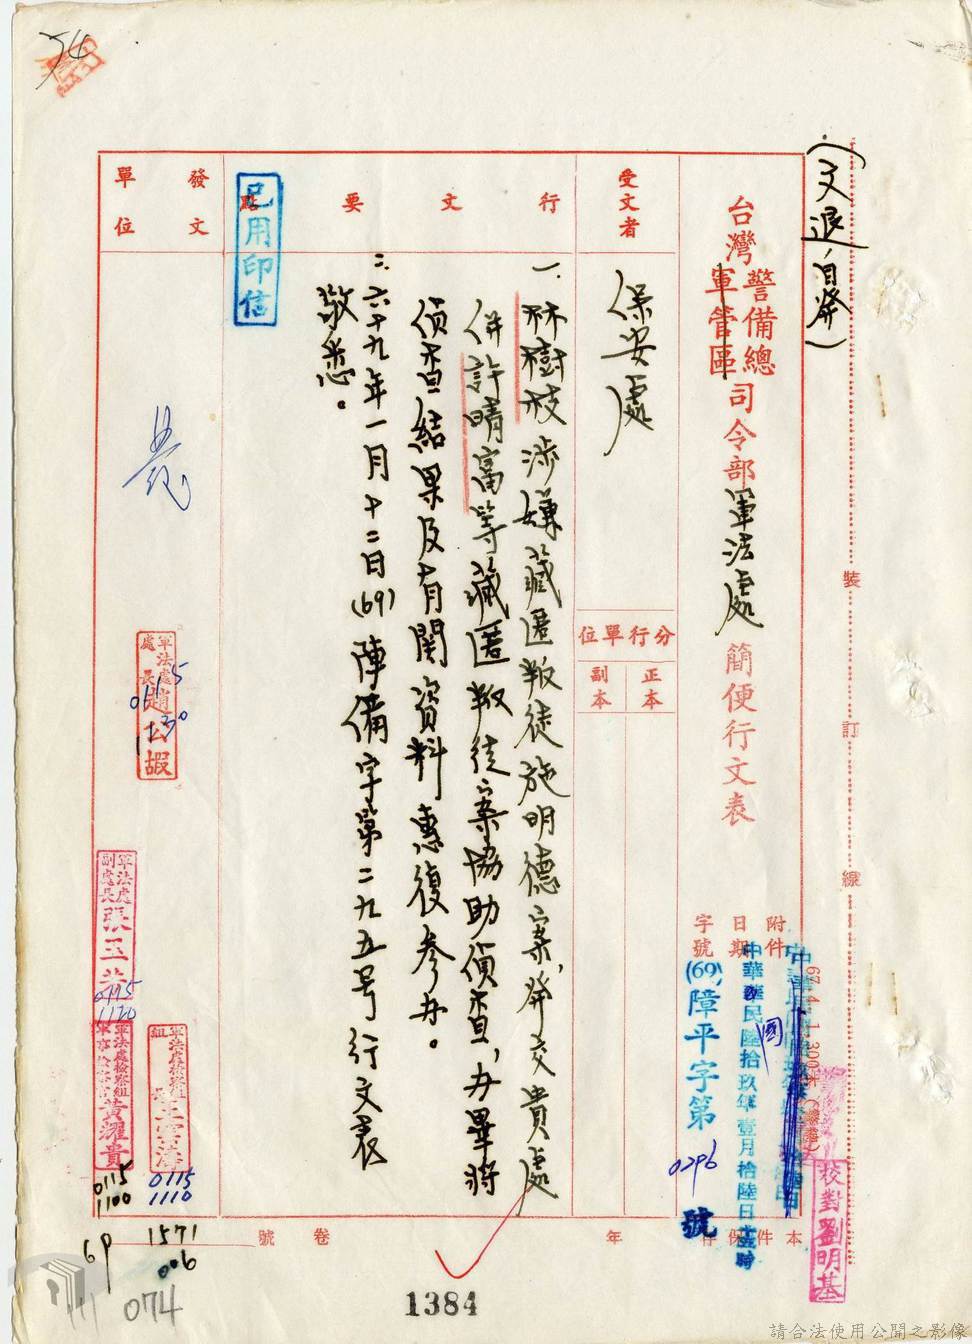 54
(文退自繕)
裝
訂
線
台灣警備總軍管區司令部軍法處簡便行文表
附件
日期
字號
中華民國陸拾玖年壹月拾陸日
(69)障平字第0296號
校對劉明基
受文者
保安處
分行單位
正本
副本
行文要點
一、林樹枝涉嫌藏匿叛徒施明德案,併交貴處
併許晴富等藏匿叛徒案協助偵查,办畢將
偵查結果及有関資料惠復參办。
二、六十九年一月十二日(69)障備字第二九五号行文表
敬悉。
已用印信
發文單位
軍法處處長趙公嘏
0115
1130
軍法處副處長張玉芳
0115
1120
軍法處檢察組
黃耀貴
0115
1100
軍法處檢察組組長王雲濤
0115
1110
本件保存
年
卷
號
69
1571
006
074
1384
請合法使用公開之影像